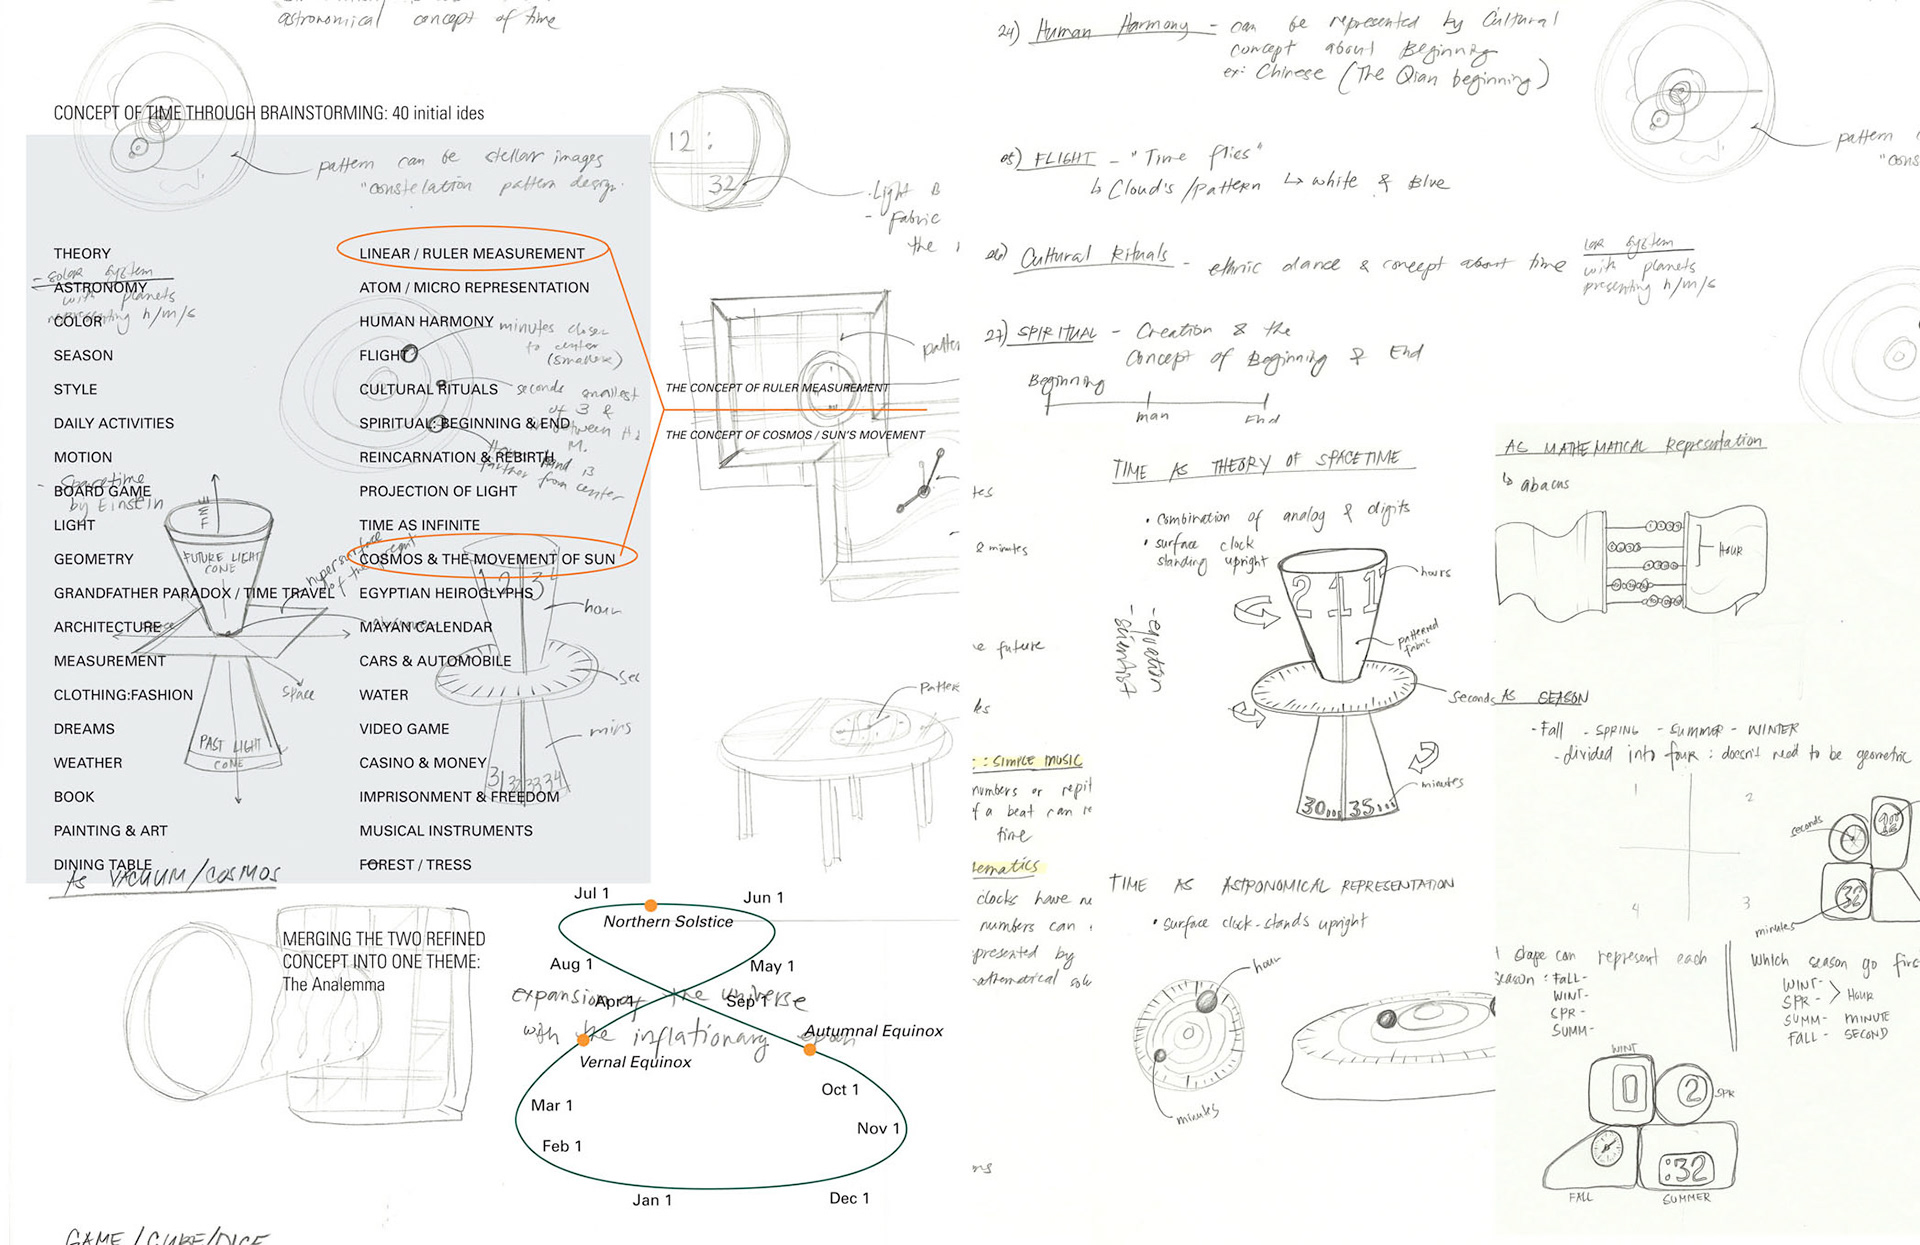 astronomical concept of time
CONCEPT OF TIME THROUGH BRAINSTORMING: 40 initial ides
pattern can be stellar images
"constelation pattern design.
THEORY
- solar system
with planets
representing h/m/s
ASTRONOMY
COLOR
SEASON
STYLE
DAILY ACTIVITIES
MOTION
- Spacetime
by Einstein
BOARD GAME
LIGHT
GEOMETRY
GRANDFATHER PARADOX / TIME TRAVEL
ARCHITECTURE
MEASUREMENT
CLOTHING:FASHION
DREAMS
WEATHER
BOOK
PAINTING & ART
DINING TABLE
LINEAR / RULER MEASUREMENT
ATOM / MICRO REPRESENTATION
HUMAN HARMONY
FLIGHT
CULTURAL RITUALS
SPIRITUAL: BEGINNING & END
REINCARNATION & REBIRTH
PROJECTION OF LIGHT
TIME AS INFINITE
COSMOS & THE MOVEMENT OF SUN
EGYPTIAN HEIROGLYPHS
MAYAN CALENDAR
CARS & AUTOMOBILE
WATER
VIDEO GAME
CASINO & MONEY
IMPRISONMENT & FREEDOM
MUSICAL INSTRUMENTS
FOREST / TRESS
minutes closer
to center
(smallest)
seconds smallest
of 3 &
between H &
M.
further from center
FUTURE LIGHT
CONE
hypersurface
of the present
space
PAST LIGHT
CONE
1 2 3
hour
sec
mins
31 32 33 34
12:
32
Light B
- Fabric
the
THE CONCEPT OF RULER MEASUREMENT
THE CONCEPT OF COSMOS / SUN'S MOVEMENT
patte
patter
AS VACUUM/COSMOS
MERGING THE TWO REFINED
CONCEPT INTO ONE THEME:
The Analemma
expansion of the universe
with the inflationary epoch
Jul 1
Jun 1
Northern Solstice
Aug 1
May 1
Apr 1
Sep 1
Autumnal Equinox
Vernal Equinox
Oct 1
Mar 1
Nov 1
Feb 1
Jan 1
Dec 1
GAME/CUBE/DICE
24) Human Harmony - can be represented by Cultural
concept about Beginning
ex: Chinese (The Qian beginning)
05) FLIGHT - "Time flies"
↳ Cloud's/pattern ↳ white & Blue
26) Cultural Rituals - ethnic dance & concept about time
27) SPIRITUAL - Creation & the
Concept of Beginning & End
Beginning
man
End
pattern
"cons
lar system
with planets
presenting h/m/s
TIME AS THEORY OF SPACETIME
• combination of analog & digits
• surface clock
standing upright
- equation
- scientist
2 11 1
hours
patterned
fabric
seconds
minutes
30... 35...
tes
& minutes
e future
les
:: SIMPLE MUSIC
numbers or repit
f a beat can re
time
ematics
clocks have nu
numbers can
presented by
athematical solu
ns
TIME AS ASTRONOMICAL REPRESENTATION
• surface clock-stands upright
hour
minutes
AS MATHEMATICAL Representation
↳ abacus
HOUR
AS SEASON
- Fall - SPRING - SUMMER - WINTER
- divided into four : doesn't need to be geometric
1
2
4
3
seconds
minutes
32
shape can represent each
season : FALL-
WINT-
SPR-
SUMM-
Which season go first
WINT-
SPR- > HOUR
SUMM- MINUTE
FALL- SECOND
WINT
0
2
SPR
:32
FALL
SUMMER